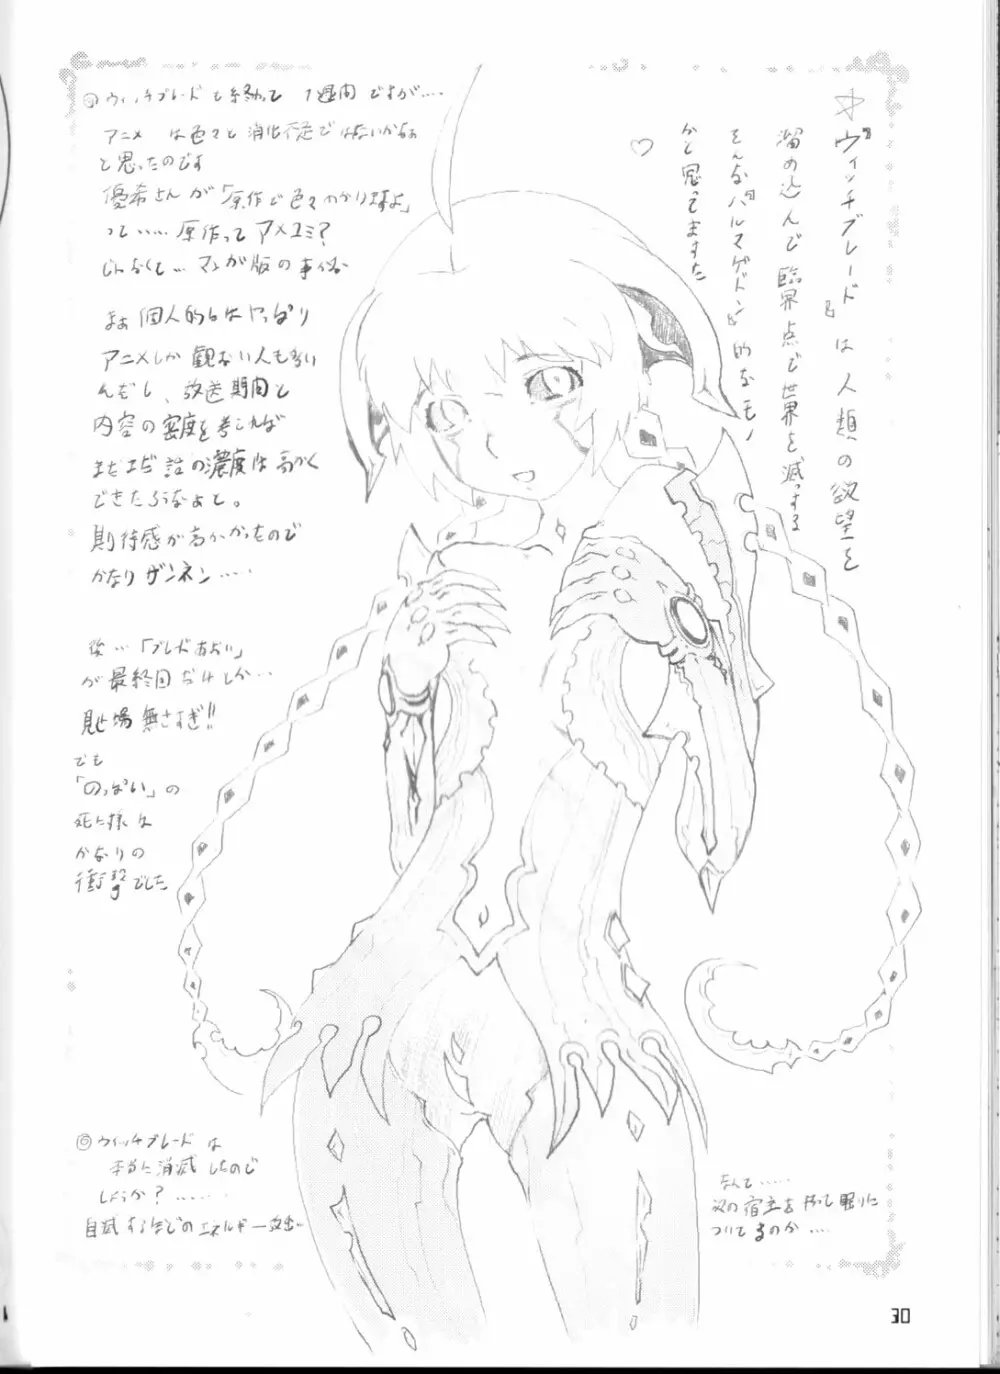 ウィッチブレードも終わって 1週間ですが……
アニメ は色々と消化不足ではないかなぁ
と思ったのです
優希さんが「原作で色々わかりますよ」
って…… 原作ってアメコミ?
じゃなくて… マンガ版の事かな
まぁ個人的にはやっぱり
アニメしか観ない人も多い
んだし、放送期間と
内容の密度を考えれば
まだまだ話の濃度は高かく
できたろうなぁと。
期待感が高かかったもので
かなりザンネン……
後…「ブレードあおい」
が最終回だけしか…
見せ場無さすぎ!!
でも
「のっぽい」の
死に様は
かなりの
衝撃でした
☆『ヴィッチブレード』は人類の欲望を
溜め込んで臨界点で世界を滅っする
そんな『ハルマゲドン』的なモノ
かと思ってますた
♡
◎ウィッチブレードは
本当に消滅したので
しょうか?……
自滅するほどのエネルギー放出…
なんて……
次の宿主を探して眠りに
ついてるのか……
30